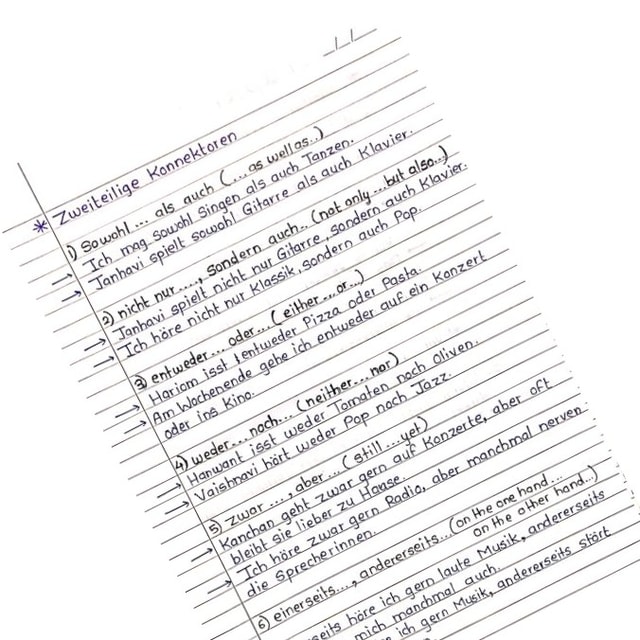 _/_/
* Zweiteilige Konnektoren
1) Sowohl ... als auch (... as well as..)
→ Ich mag sowohl Singen als auch Tanzen.
→ Janhavi spielt sowohl Gitarre als auch Klavier.
2) nicht nur ...., sondern auch.. (not only ... but also..)
→ Janhavi spielt nicht nur Gitarre, sondern auch Klavier.
→ Ich höre nicht nur Klassik, sondern auch Pop.
3) entweder... oder... (either...or..)
→ Hariom isst entweder Pizza oder Pasta.
→ Am Wochenende gehe ich entweder auf ein Konzert
oder ins Kino.
4) weder... noch... (neither... nor)
→ Hanwant isst weder Tomaten noch Oliven.
→ Vaishnavi hört weder Pop noch Jazz.
5) zwar ..., aber ... (still ... yet)
→ Kanchan geht zwar gern auf Konzerte, aber oft
bleibt sie lieber zu Hause.
→ Ich höre zwar gern Radio, aber manchmal nerven
die Sprecherinnen.
6) einerseits..., andererseits... (on the one hand...
on the other hand...)
seits höre ich gern laute Musik, andererseits
mich manchmal auch.
ich gern Musik, andererseits stört